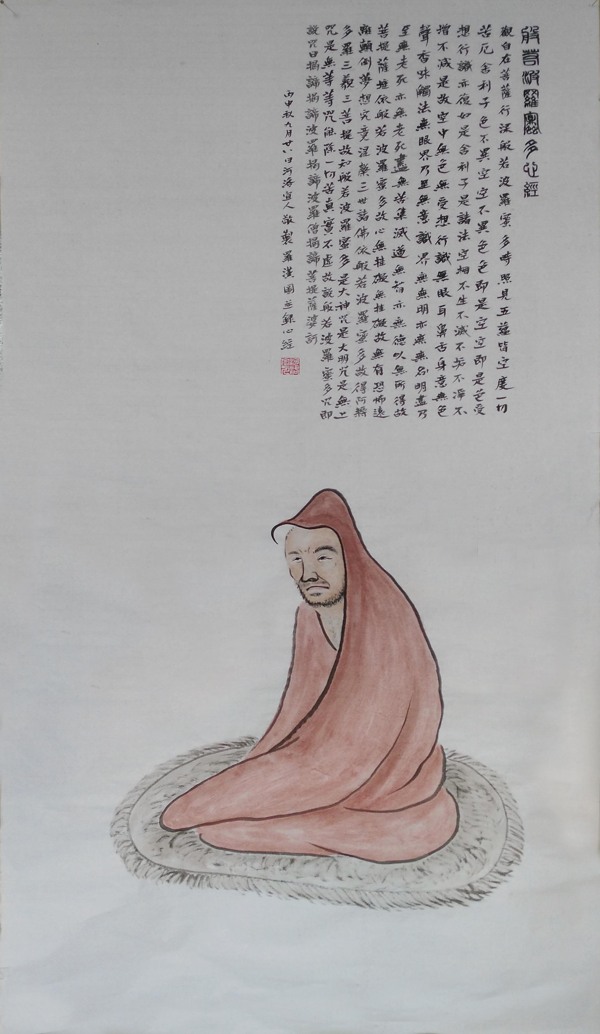 般若波羅蜜多心經
觀自在菩薩行深般若波羅蜜多時照見五蘊皆空度一切
苦厄舍利子色不異空空不異色色即是空空即是色受
想行識亦復如是舍利子是諸法空相不生不滅不垢不淨不
增不減是故空中無色無受想行識無眼耳鼻舌身意無色
聲香味觸法無眼界乃至無意識界無無明亦無無明盡乃
至無老死亦無老死盡無苦集滅道無智亦無德以無所得故
菩提薩埵依般若波羅蜜多故心無挂礙無挂礙故無有恐怖遠
離顛倒夢想究竟涅槃三世諸佛依般若波羅蜜多故得阿耨
多羅三藐三菩提故知般若波羅蜜多是大神咒是大明咒是無上
咒是無等等咒能除一切苦真實不虛故說般若波羅蜜多咒即
說咒曰揭諦揭諦波羅揭諦波羅僧揭諦菩提薩婆訶
丙申秋九月廿八日河海宜人敬製羅漢圖並錄心經